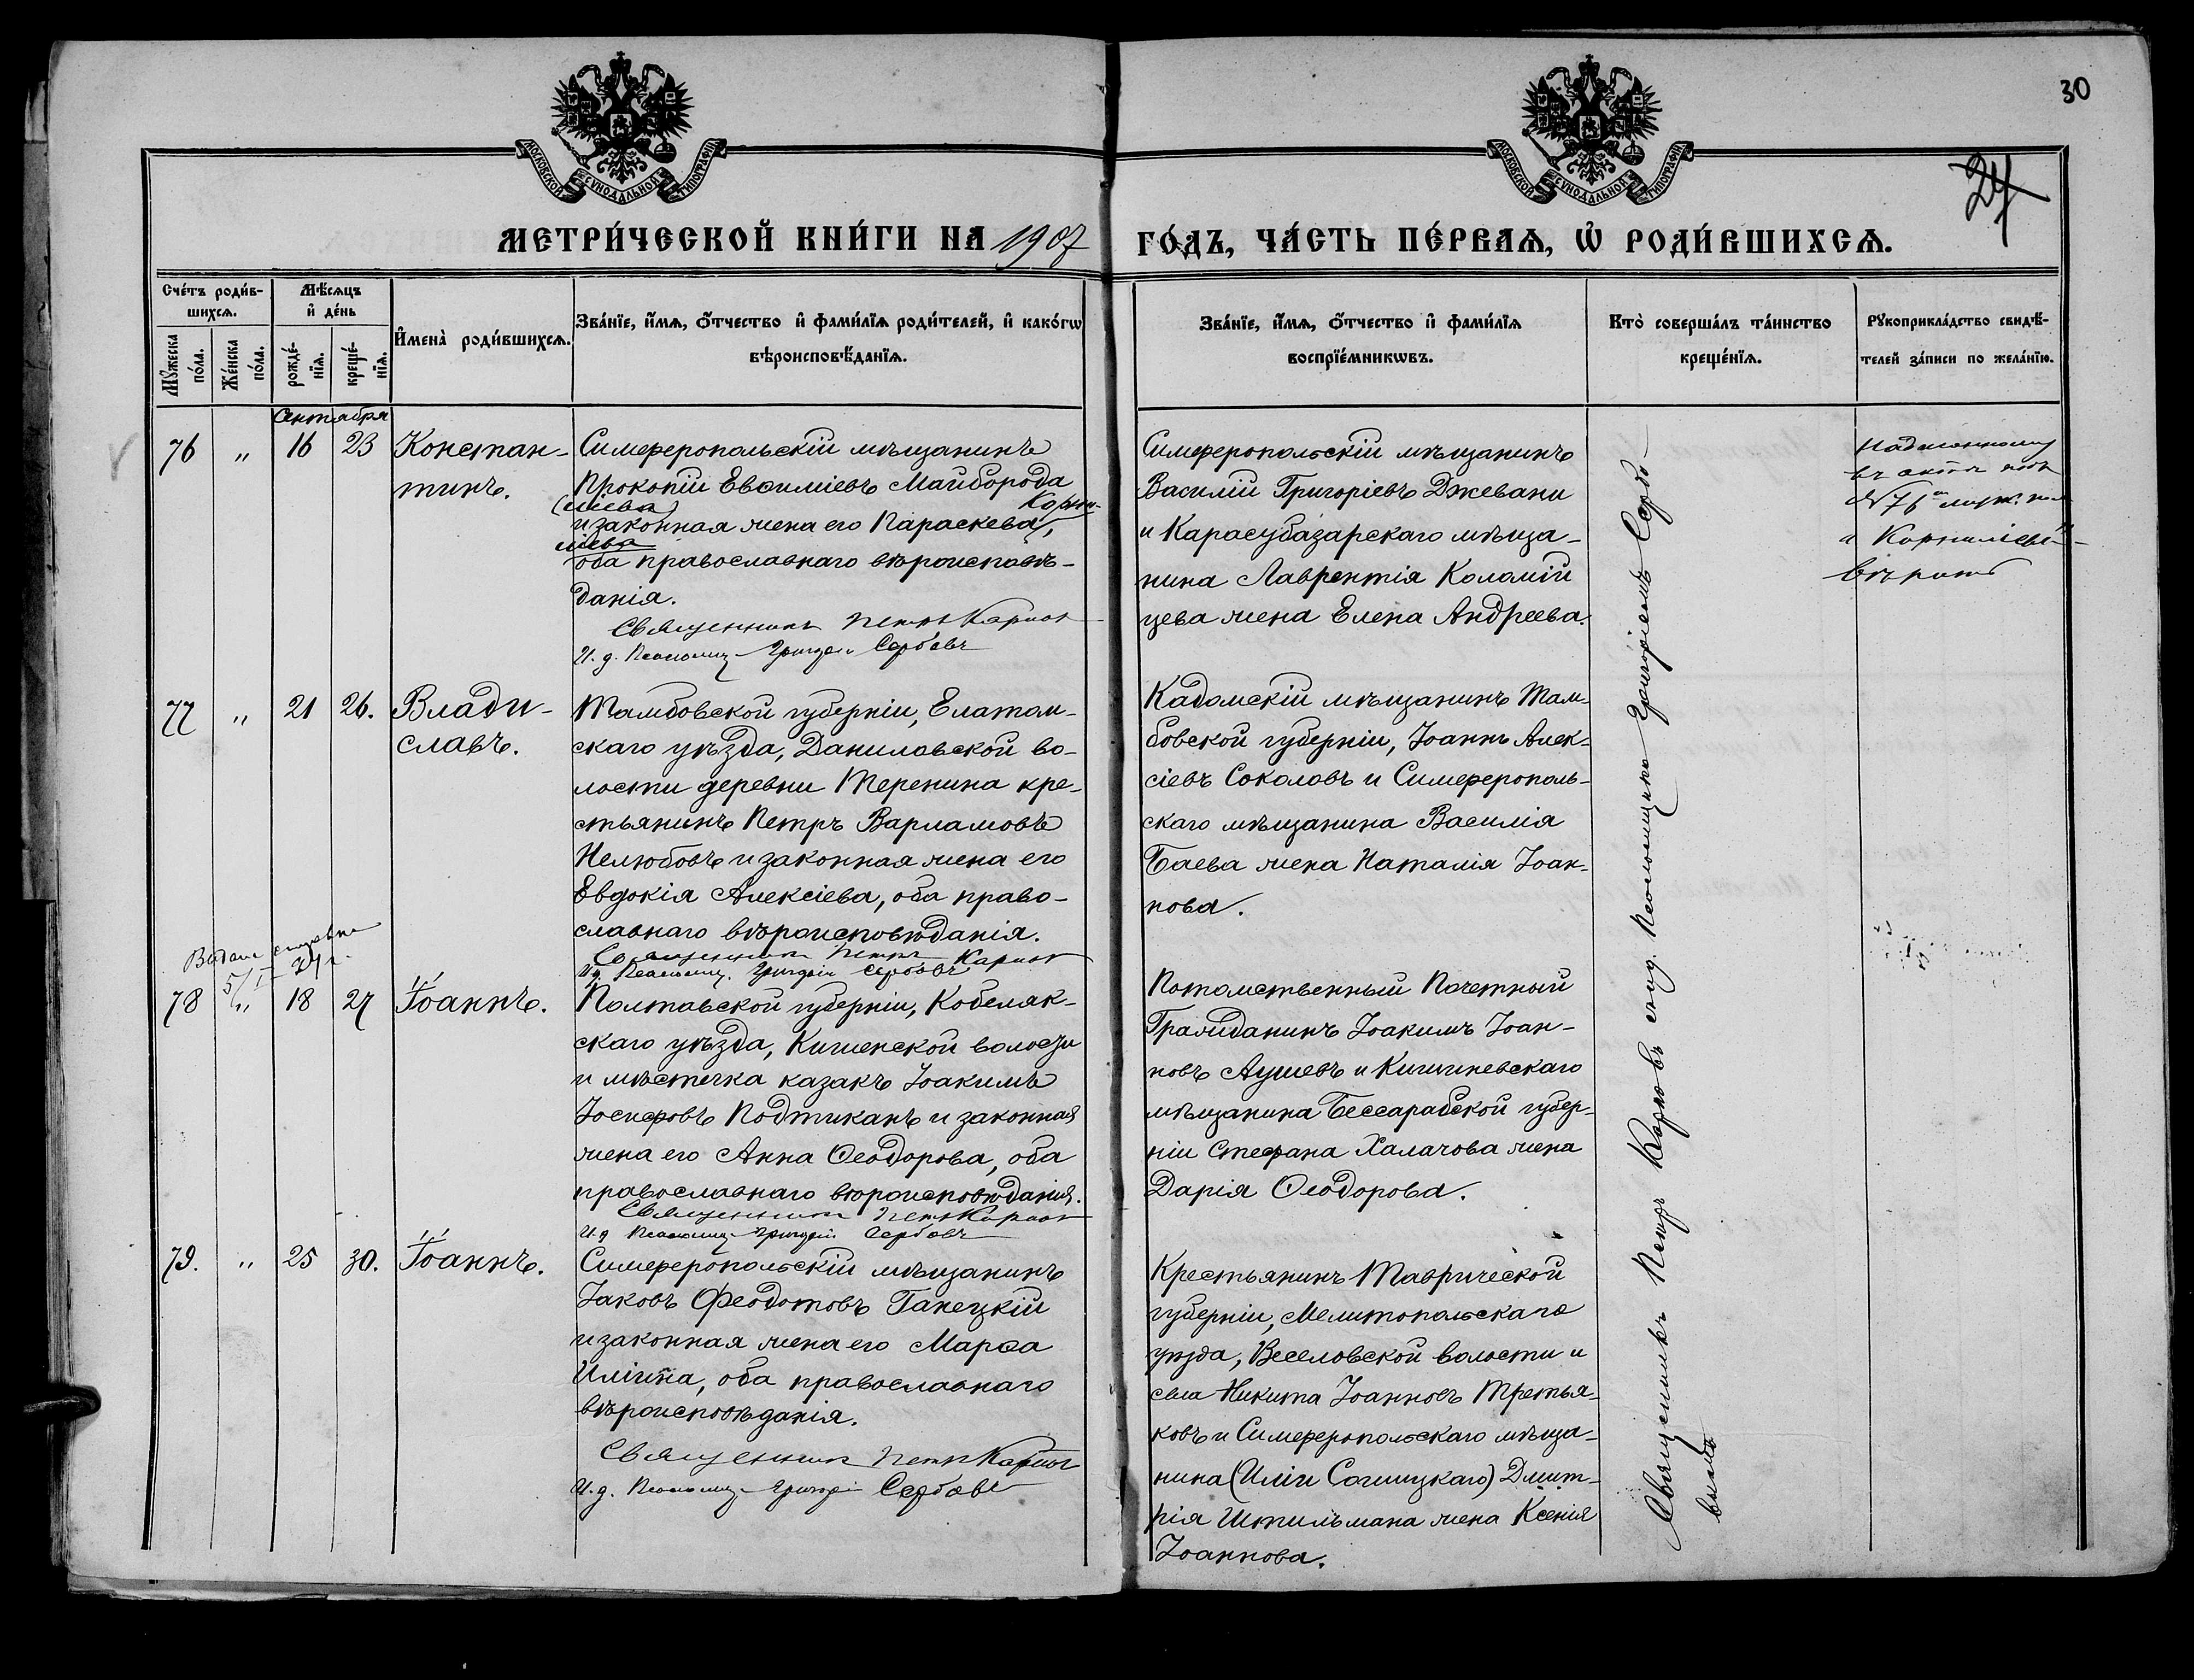 30
24
МОСКОВСКОЙ СѴНОДАЛЬНОЙ ТИПОГРАФІИ
МОСКОВСКОЙ СѴНОДАЛЬНОЙ ТИПОГРАФІИ
МЕТРИ́ЧЕСКОЙ КНИ́ГИ НА 1907 ГО́ДЪ, ЧА́СТЬ ПЕ́РВАЯ, Ѡ РОДИ́ВШИХСЯ.
Сче́тъ роди́вшихся.
Мꙋ́жеска по́ла.
Же́нска по́ла.
Мѣ́сяцъ и҆ де́нь
рожде́нїя.
креще́нїя.
И҆мена̀ роди́вшихся.
Зва́нїе, и҆́мя, ѻ҆́тчество и҆ фами́лїя роди́телей, и҆ како́гѡ
вѣроисповѣ́данїя.
Зва́нїе, и҆́мя, ѻ҆́тчество и҆ фами́лїя
воспрїе́мникѡвъ.
Кто̀ соверша́лъ та́инство
креще́нїя.
Рꙋкоприкла́дство свидѣ́-
телей за́писи по жела́нїю.
Сентября
76 " 16 23 Констан-
тинъ.
Симферопольскій мѣщанинъ
Прокопій Евѳиміевъ Майборода
и законная жена его Параскева Корни-
ліева,
оба православнаго вѣроисповѣ-
данія.
Священникъ Петръ Карпов
И. д. Псаломщ. Григорій Сербовъ
Симферопольскій мѣщанинъ
Василій Григоріевъ Джевани
и Карасубазарскаго мѣща-
нина Лаврентія Коломій
цева жена Елена Андреева.
Надписанному
въ актѣ подъ
№ 76 муж. пола
и Корниліева
вѣрить
77 " 21 26. Влади-
славъ.
Тамбовской губерніи, Елатом-
скаго уѣзда, Даниловской во-
лости деревни Теренина кре-
стьянинъ Петръ Варламовъ
Нелюбовъ и законная жена его
Евдокія Алексіева, оба право-
славнаго вѣроисповѣданія.
Священникъ Петръ Карпов
И. д. Псаломщ. Григорій Сербовъ
Кадомскій мѣщанинъ Там-
бовской губерніи, Іоаннъ Алек-
сіевъ Соколовъ и Симферополь-
скаго мѣщанина Василія
Баева жена Наталія Іоан-
нова.
Выдана справка
5/I 24 г.
78 " 18 27 Іоаннъ.
Полтавской губерніи, Кобеляк-
скаго уѣзда, Кишенской волости
и мѣстечка казакъ Іоакимъ
Іосифовъ Подтиканъ и законная
жена его Анна Ѳеодорова, оба
православнаго вѣроисповѣданія.
Священникъ Петръ Карпов
И. д. Псаломщ. Григорій Сербовъ
Потомственный Почетный
Гражданинъ Іоакимъ Іоан-
новъ Аушевъ и Кишиневскаго
мѣщанина Бессарабской губер-
ніи Стефана Халачова жена
Дарія Ѳеодорова.
79. " 25 30. Іоаннъ.
Симферопольскій мѣщанинъ
Іаковъ Феодотовъ Ганецкій
и законная жена его Марѳа
Иліина, оба православнаго
вѣроисповѣданія.
Священникъ Петръ Карпов
И. д. Псаломщ. Григорій Сербовъ
Крестьянинъ Таврической
губерніи, Мелитопольскаго
уѣзда, Веселовской волости и
села Никита Іоанновъ Третья-
ковъ и Симферопольскаго мѣща-
нина (Иліи Сочицкаго) Дмит-
рія Штильмана жена Ксенія
Іоаннова.
Священникъ Петръ Карповъ съ и. д. Псаломщика Григоріемъ Сербо-
вымъ